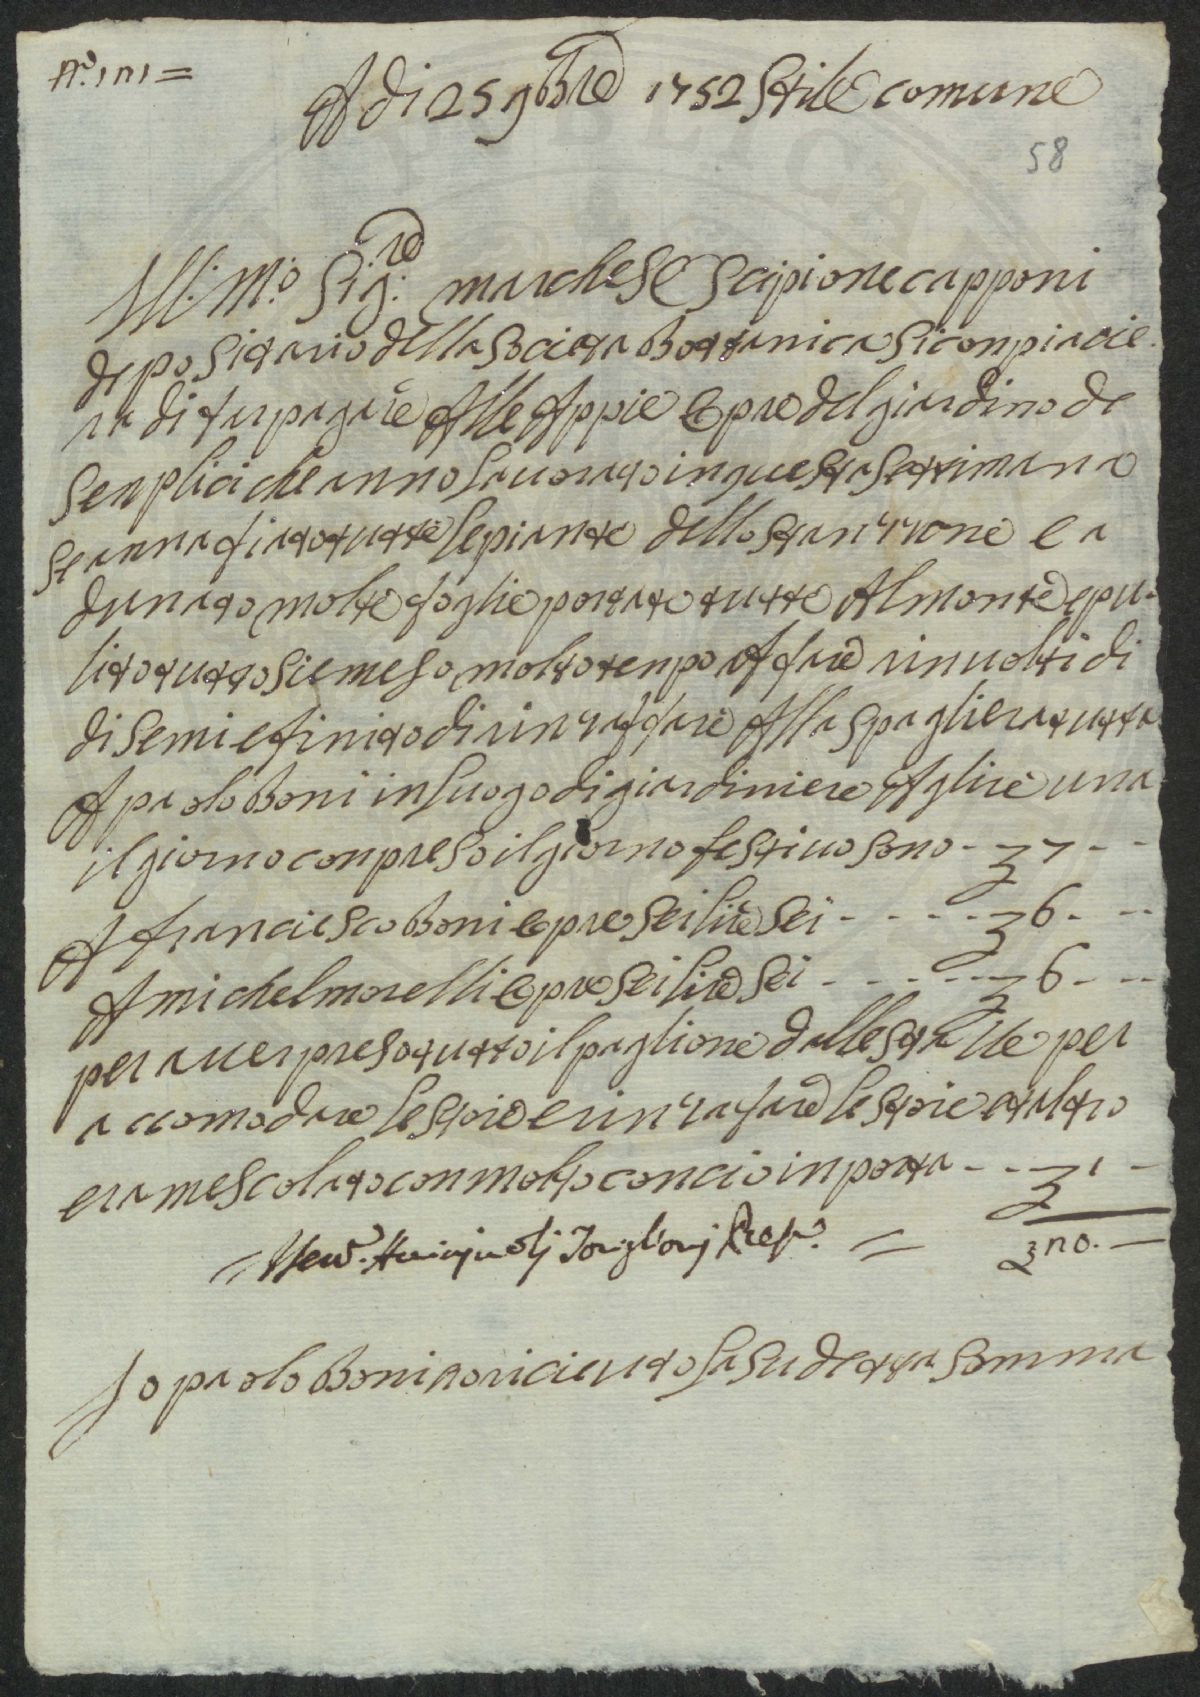 N.º 121 =
A di 25 9bre 1752 Stile comune
58
Ill: M:º Sig:re marchese Scipione capponi
depositario della Societa Bottanica Si conpiacie
ra di far pagare Alle Appie Opre del giardino de
Senplici che anno Lauorato in questa Settimana
Se anna fiato tutte le piante dello Stanzione e a
dunato molte foglie portate tutte Al monte e pu
lito tutto Sie meso molto tenpo A fare rinuolti di
di Semi e finito di rinzaffare Alla Spagliera tutta
A paolo Boni in Luogo di giardiniere A lire una
il giorno conpreso il giorno festiuo Sono - - 7 - -
A franciesco Boni Opre Sei lire Sei - - - - 6 - -
A michel morelli Opre Sei lire Sei - - - - 6 - -
per auer preso tutto il paglione dalle Stalle per
accomodare le Stoie e rinzafare le Stoie e taltro
era mescolato con molto concio in porta - - 1 -
20. —
Io paolo Boni o riceuuto La Sudetta Somma